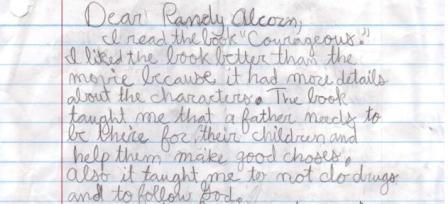 Dear Randy Alcorn,
I read the book "Courageous."
I liked the book better than the
movie because it had more details
about the characters. The book
taught me that a father needs to
be there for their children and
help them make good choses.
Also it taught me to not do drugs
and to follow God.